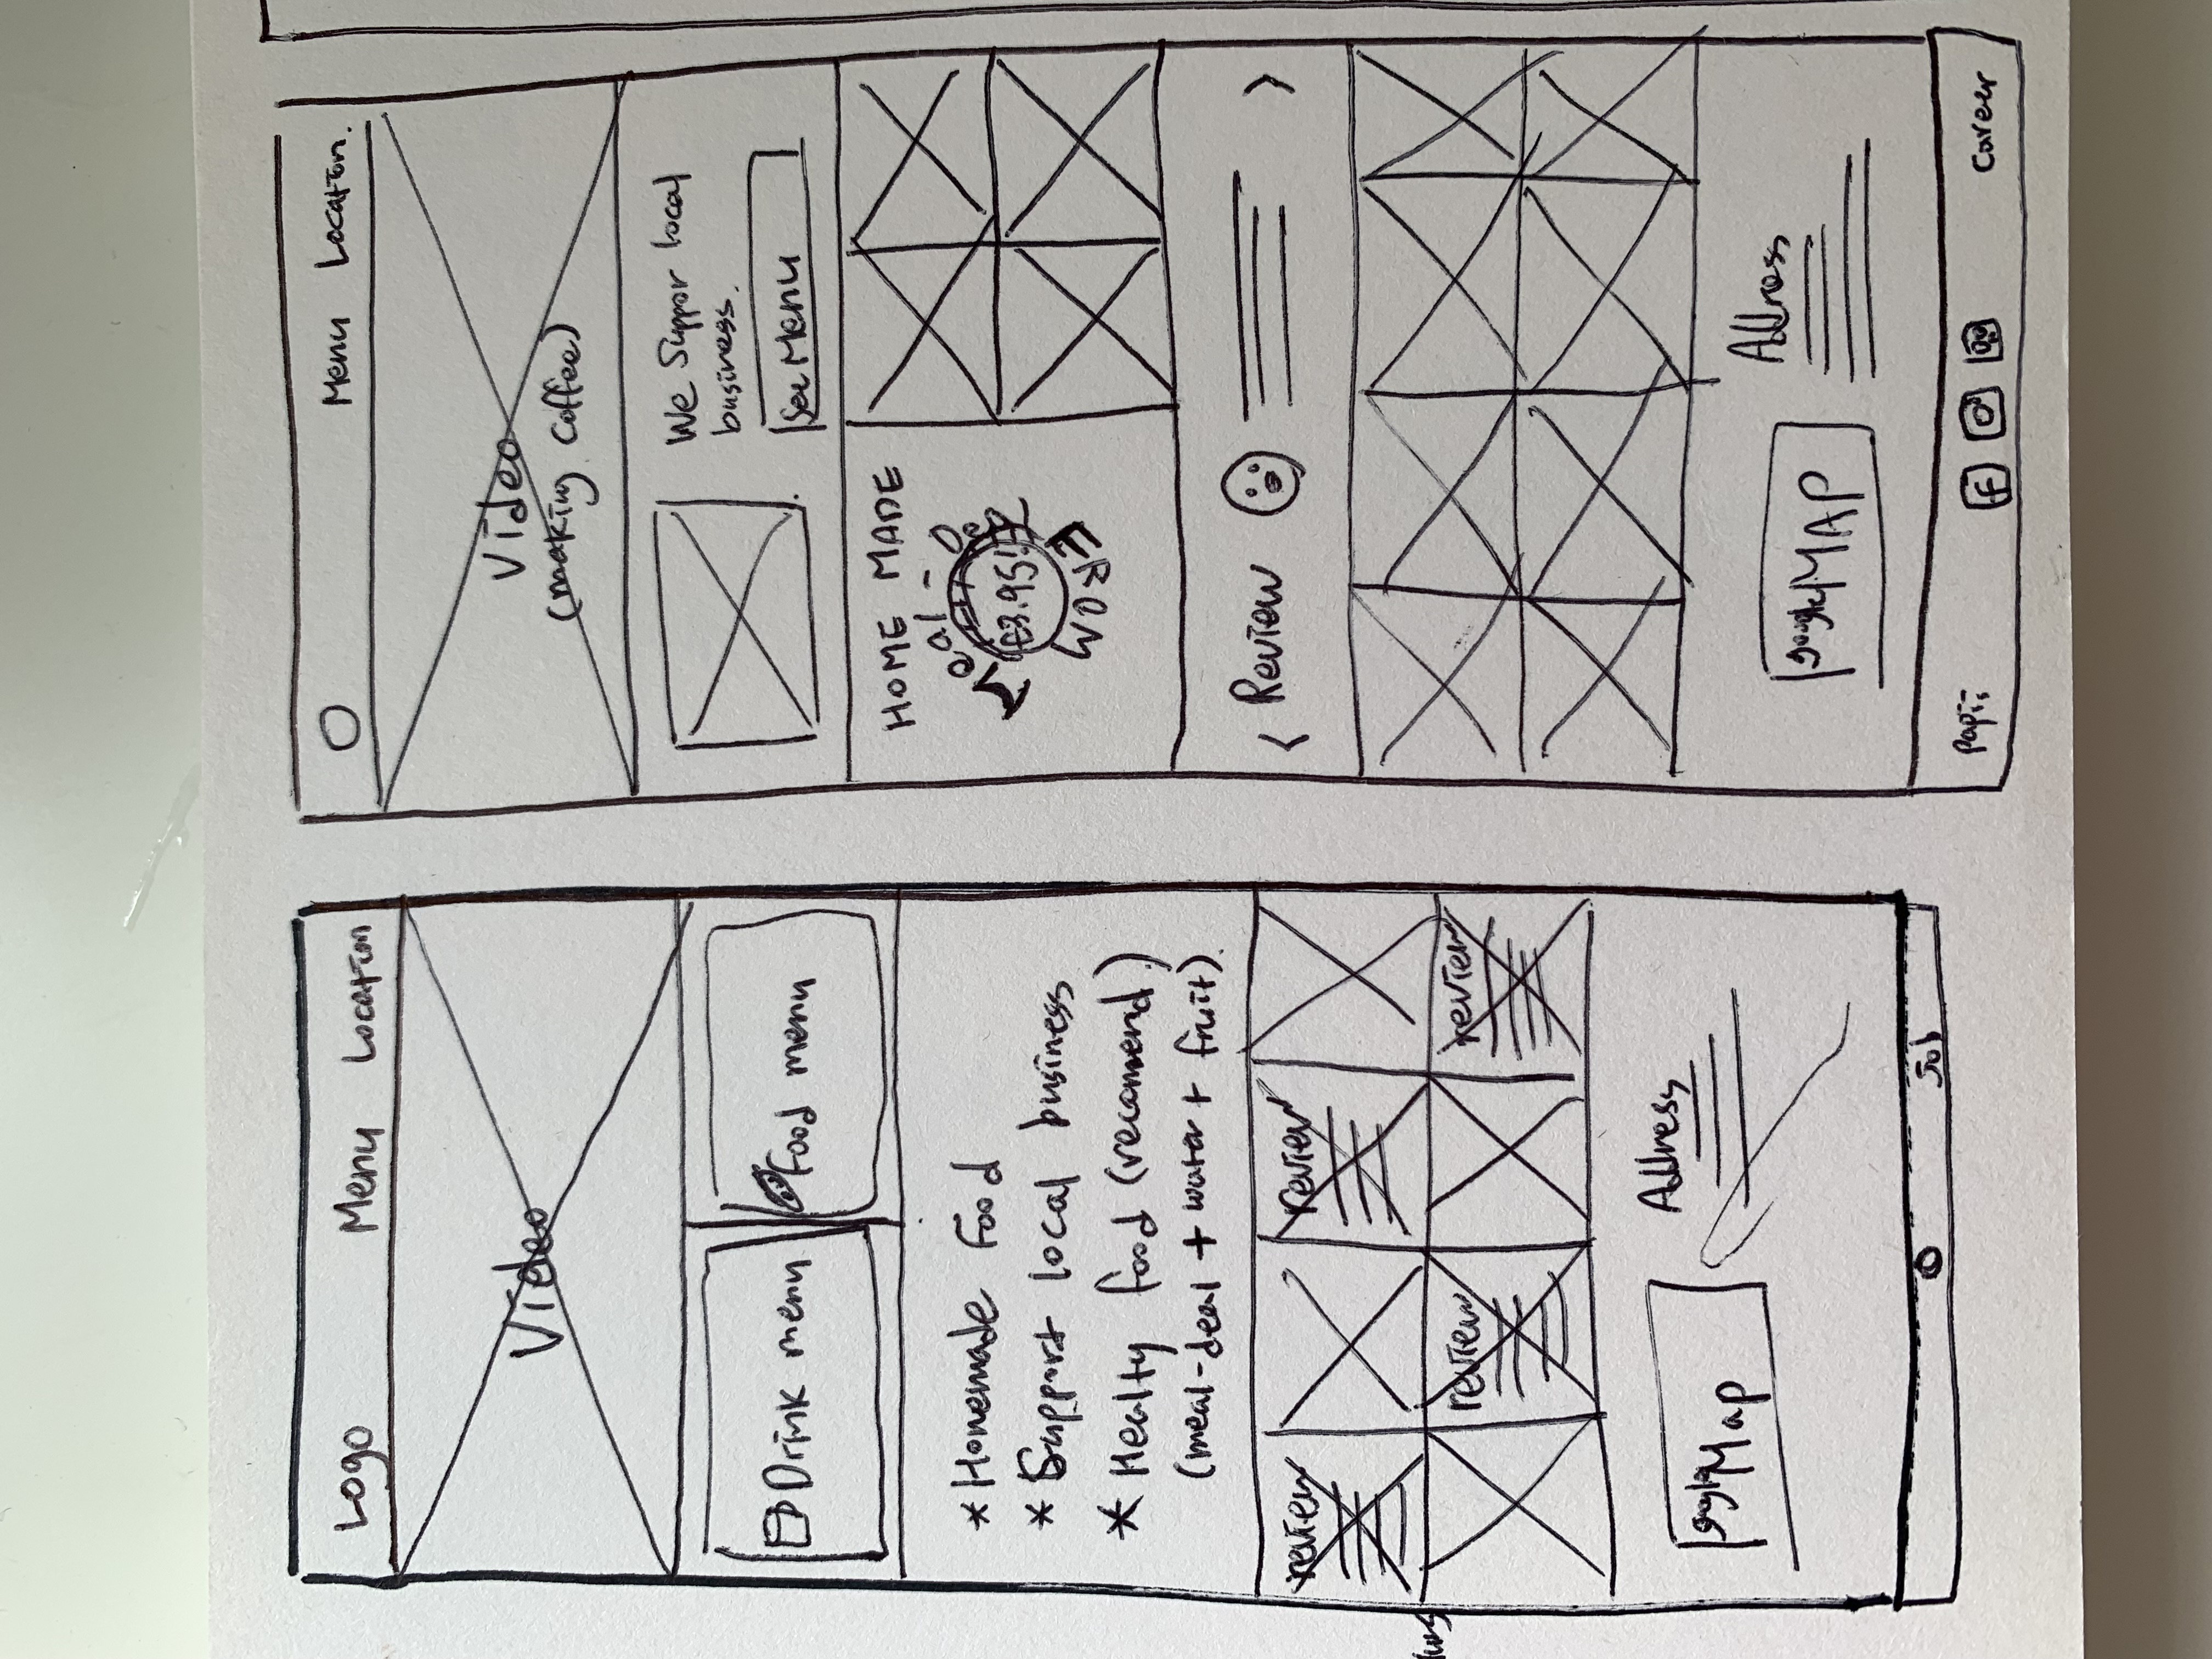 Logo Menu Location
Video
Drink menu
Food menu
* Homemade Food
* Support local business
* Healty food (recomend.)
(meal-deal + water + fruit).
review
review
review
review
google Map
Address
Job
Menu Location.
Video
(making coffee)
We Suppor local
business.
See Menu
HOME MADE
Meal-Deal
£3.95!
FROM
< Review >
google MAP
Address
Papii
f
Career